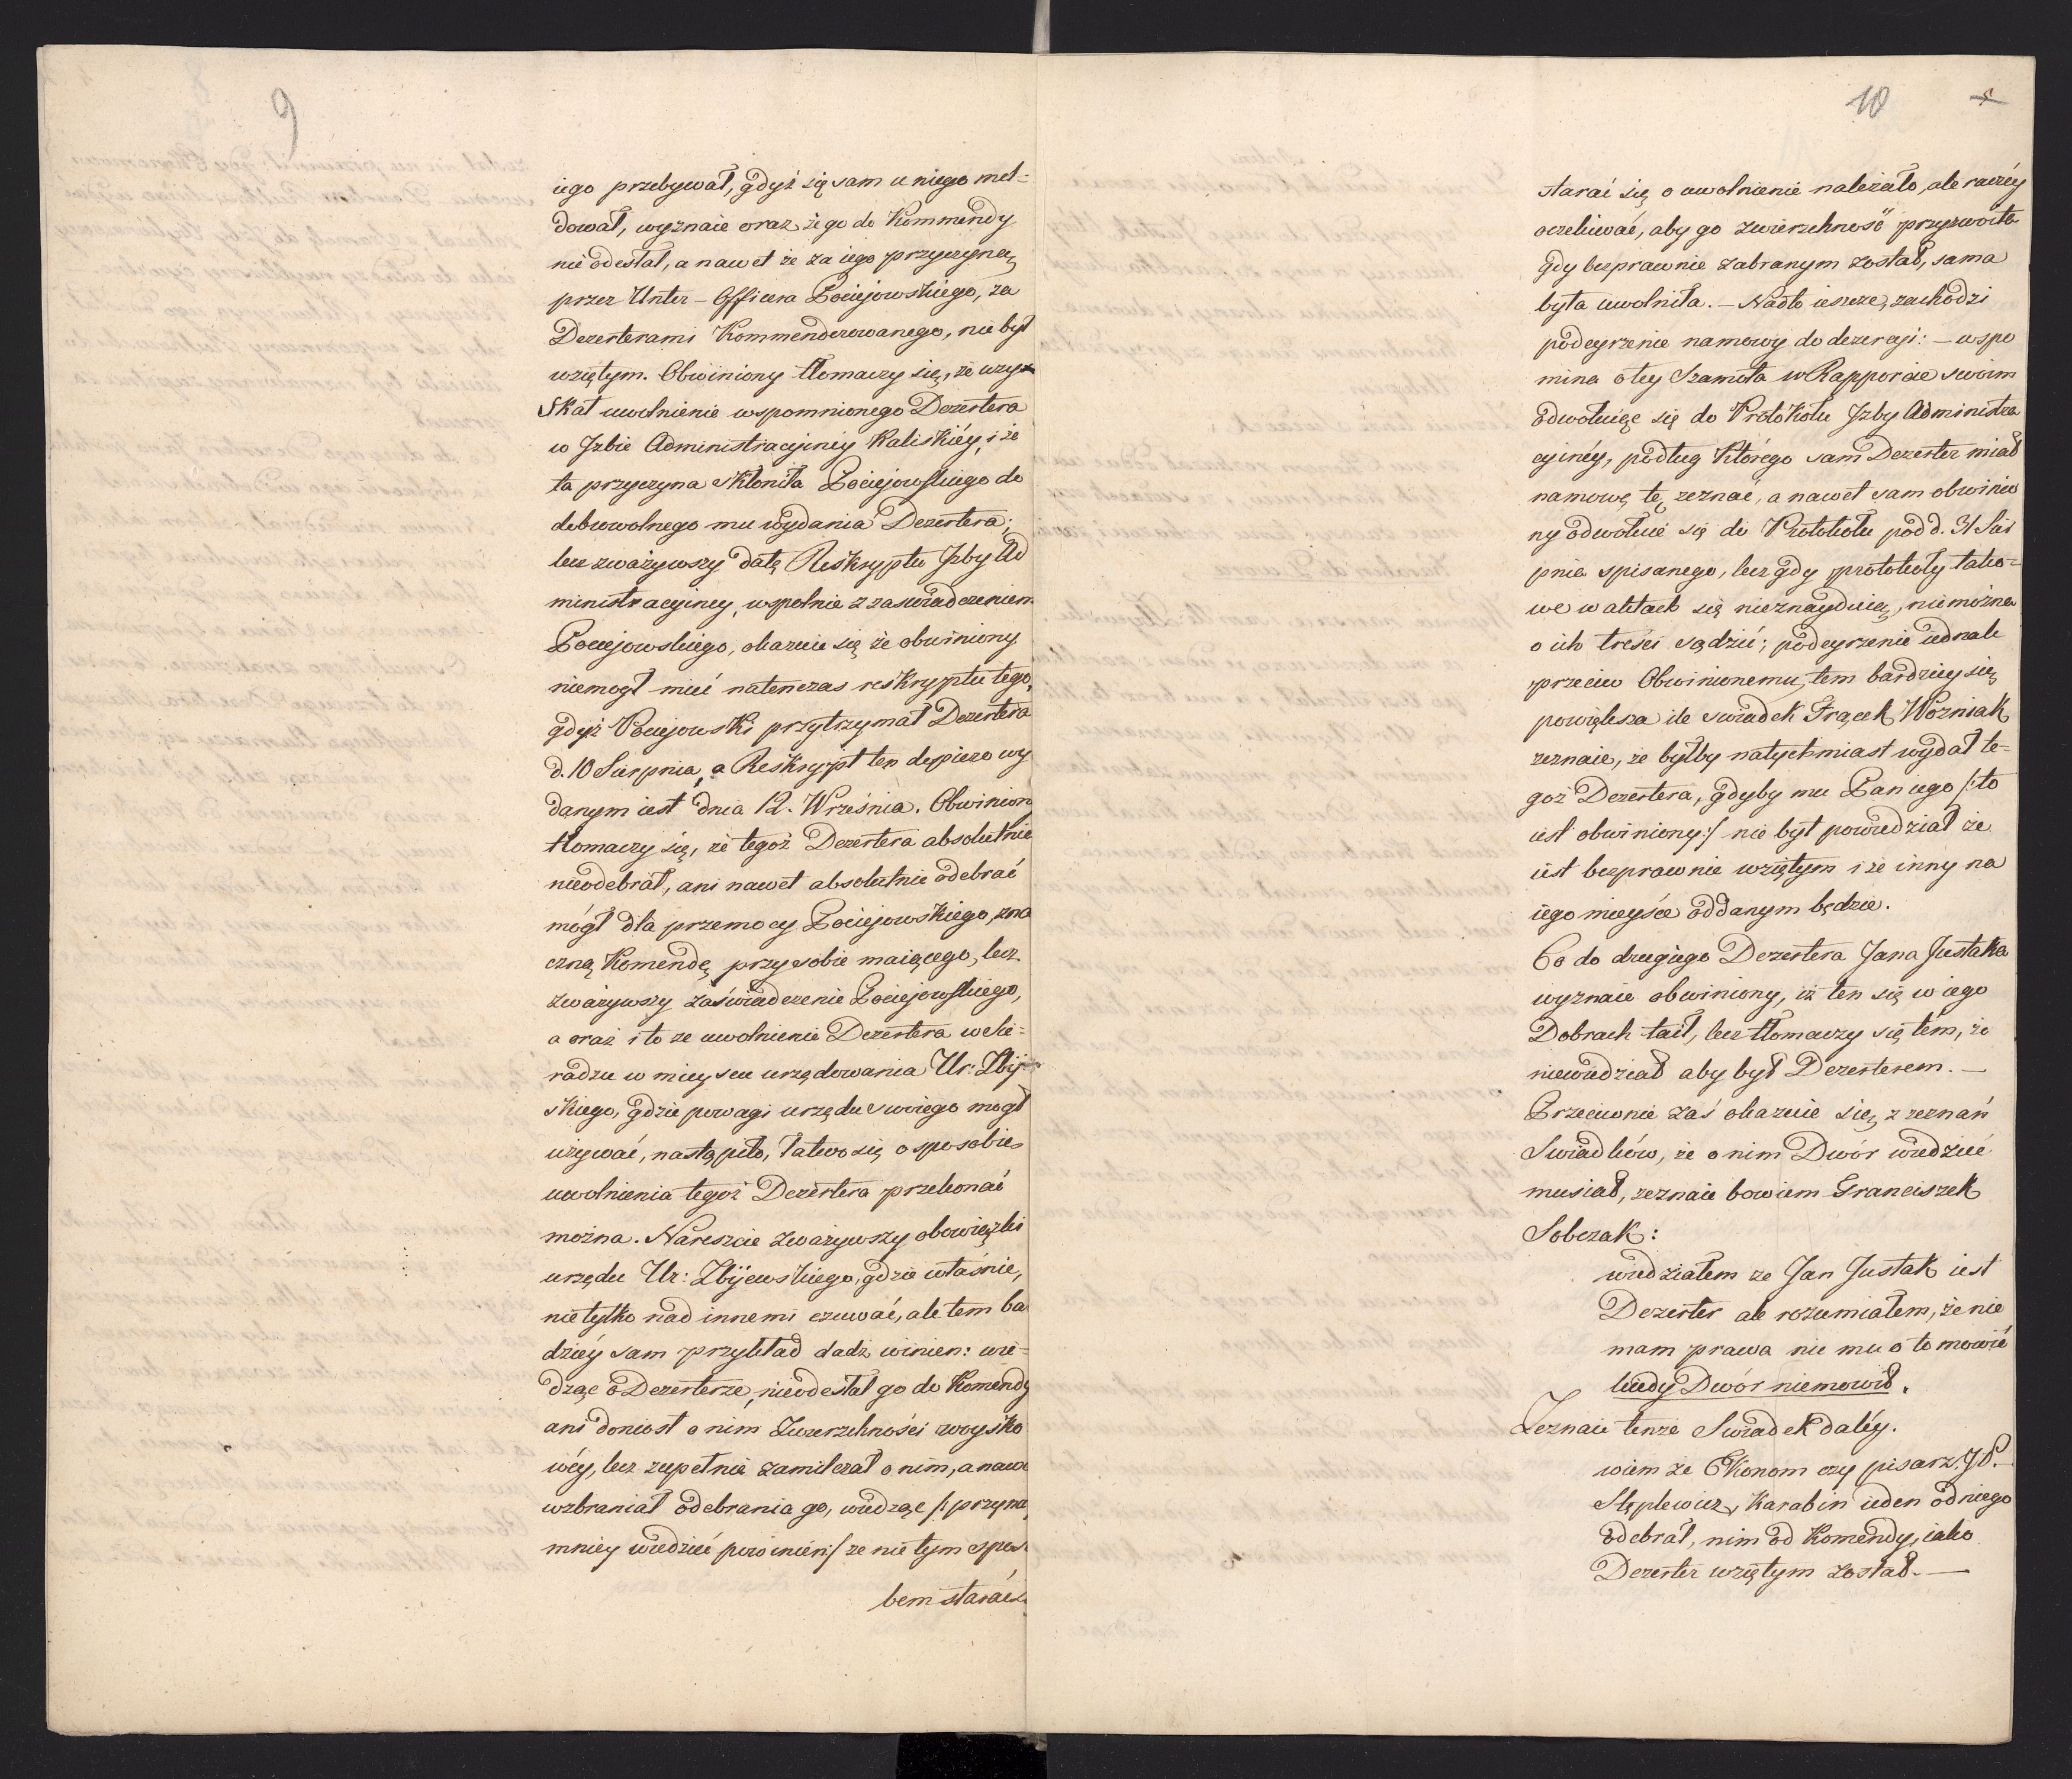 9
iego przebywał, gdyż się sam u niego mel=
dował, wyznaie oraz, że go do Kommendy
nie odesłał, a nawet że za iego przyczyną
przez Unter-Officera Pociejowskiego, za
Dezerterami Kommenderowanego, nie był
wziętym. Obwiniony tłomaczy się, że uzy
skał uwolnienie wspomnionego Dezertera
w Jzbie Administracyiney Kaliskiéy, i że
ta przyczyna skłoniła Pociejowskiego do
dobrowolnego mu wydania Dezertera;
lecz zważywszy datę Reskryptu Jzby Ad
ministracyiney, wspolnie z zaswiadczeniem
Pociejowskiego, okazuie się że obwiniony
niemogł mieć natenczas reskryptu tego,
gdyż Pociejowski przytrzymał Dezertera
d. 10 Sierpnia, a Reskrypt ten dopiero wy
danym iest dnia 12. Września. Obwiniony
tłomaczy się, że tegoż Dezertera absolutnie
nieodebrał, ani nawet absolutnie odebrać
mógł dla przemocy Pociejowskiego, zna
czną Komendę przy sobie maiącego, lecz
zważywszy zaświadczenie Pociejowskiego,
a oraz i to ze uwolnienie Dezertera w Sie=
radzu w mieyscu urzędowania Ur: Zbij
skiego, gdzie powagi urzędu swoiego mogł
używać, nastąpiło, łatwo się o sposobie
uwolnienia tegoż Dezertera przekonać
można. Nareszcie zważywszy obowiązki
urzędu Ur: Zbijewskiego, gdzie właśnie,
nie tylko nad innemi czuwać, ale tem ba
dziéy sam przykład dadz winien: wie=
dząc o Dezerterze, nieodesłał go do Komendy
ani doniosł o nim Zwierzchności woysko
wéy, lecz zupełnie zamilczał o nim, a nawe
wzbraniał odebrania go, wiedząc /: przyna
mniey wiedzieć powinien :/ ze nie tym sposo
bem starać s
10
starać się o uwolnienie należało, ale raczéy
oczekiwać, aby go zwierzchność przyzwoita
gdy bezprawnie zabranym został, sama
była uwolniła. — Nadto ieszcze, zachodzi
podeyrzenie namowy do dezercyi: — wspo
mina o tey Szamota w Rapporcie swoim
odwołuiąc się do Protokołu Jzby Administra
cyinéy, podług którego sam Dezerter miał
namowę tę zeznać, a nawet sam obwinio
ny odwołuie się do Protokołu pod d. 31 Sier
pnia spisanego, lecz gdy protokoły tako=
we w aktach się nieznayduią, niemożna
o ich treści sądzić; podeyrzenie iednak
przeciw Obwinionemu, tem bardziey się
powiększa ile swiadek Frącek Wozniak
zeznaie, że byłby natychmiast wydał te=
goż Dezertera, gdyby mu Pan iego /: to
iest obwiniony :/ nie był powiedział że
iest bezprawnie wziętym i że inny na
iego mieysce oddanym będzie.
Co do drugiego Dezertera Jana Justaka
wyznaie obwiniony, iż ten się w iego
Dobrach taił, lecz tłomaczy się tém, że
niewiedział aby był Dezerterem. —
Przeciwnie zaś okazuie się z zeznań
Swiadków, że o nim Dwór wiedzieć
musiał, zeznaie bowiem Franciszek
Sobczak:
wiedziałem ze Jan Justak iest
Dezerter ale rozumiałem, że nie
mam prawa nic mu o to mowić
kiedy Dwór niemowił.
Zeznaie tenże Swiadek daléy.
wiem że Ekonom czy pisarz JP.
Stęplewicz, Karabin ieden od niego
odebrał, nim od Komendy, iako
Dezerter wziętym został. —